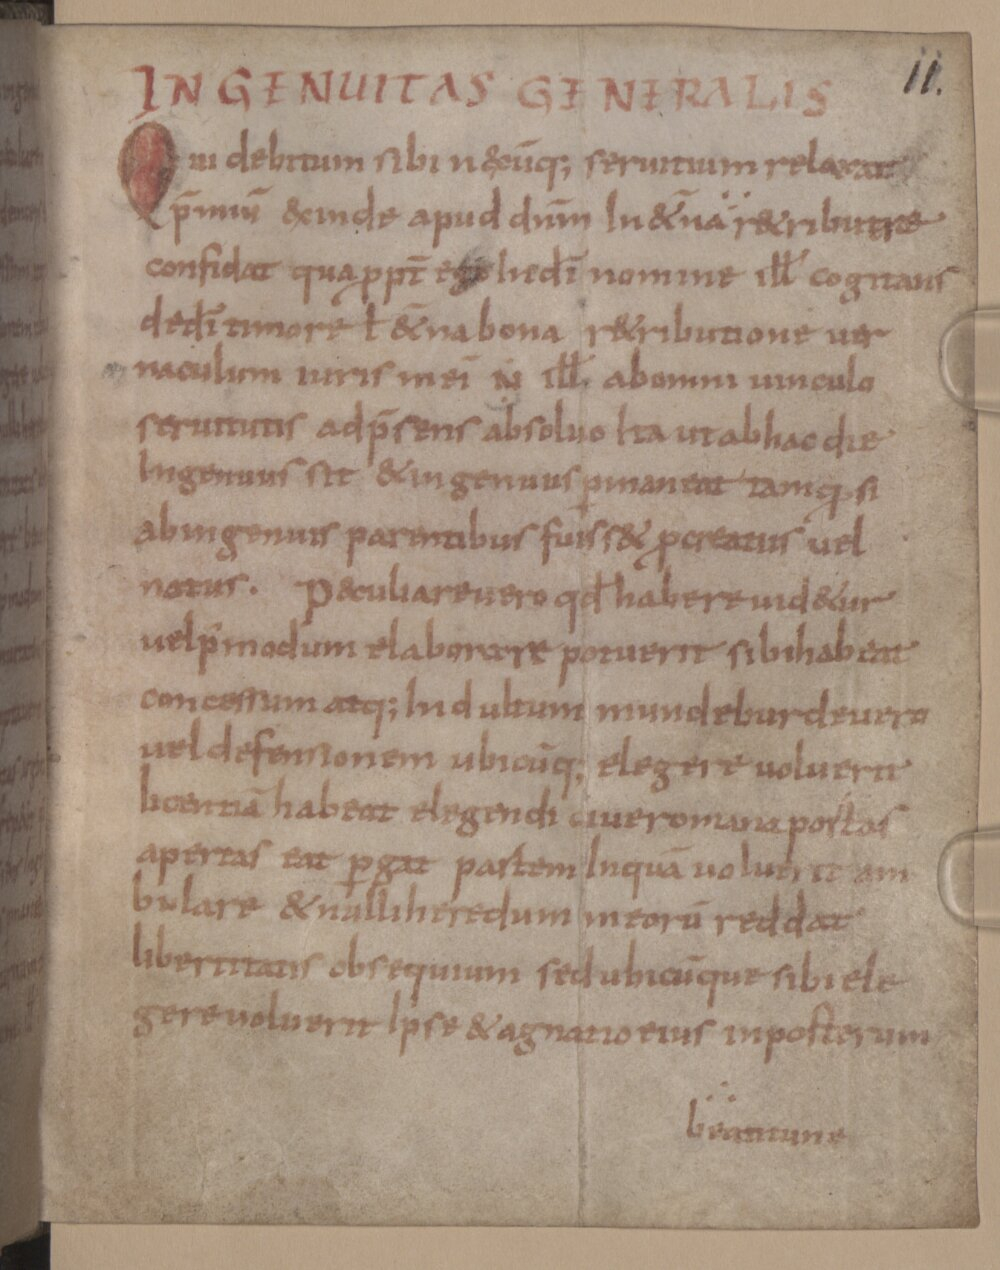 11.
INGENUITAS GENERALIS
Qui debitum sibi n&cūq; seruitium relaxat
p̄miū &inde apud dn̄m In&n̄a r&ribuere
confidat qua ꝓpt̄ ego hedī nomine ill̄ cogitans
dedī timore ł &n̄na bona r&ributione uer
naculum iuris meī N ill̄. abomni uinculo
seruitutis adp̄sens absoluo Ita utabhac die
Ingenuus sit &ingenuus ꝑmaneat tamq̄ si
abingenuis parentibus fuiss& ꝓcreatus uel
natus. P&culiareuero qd̄ habere uid&ur
uelp̄modum elaborare potuerit sibihabeat
concessum atq; Indultum mundeburdeuero
uel defensionem ubicūq; elegere uoluerit
licentiā habeat elegendi ciueromana portas
apertas eat ꝑgat partem Inquā uoluerit am
bulare &nulliheredum meorū reddat
libertitatis obsequium sedubicūque sibi ele
gereuoluerit Ipse &agnatio eius inposterum